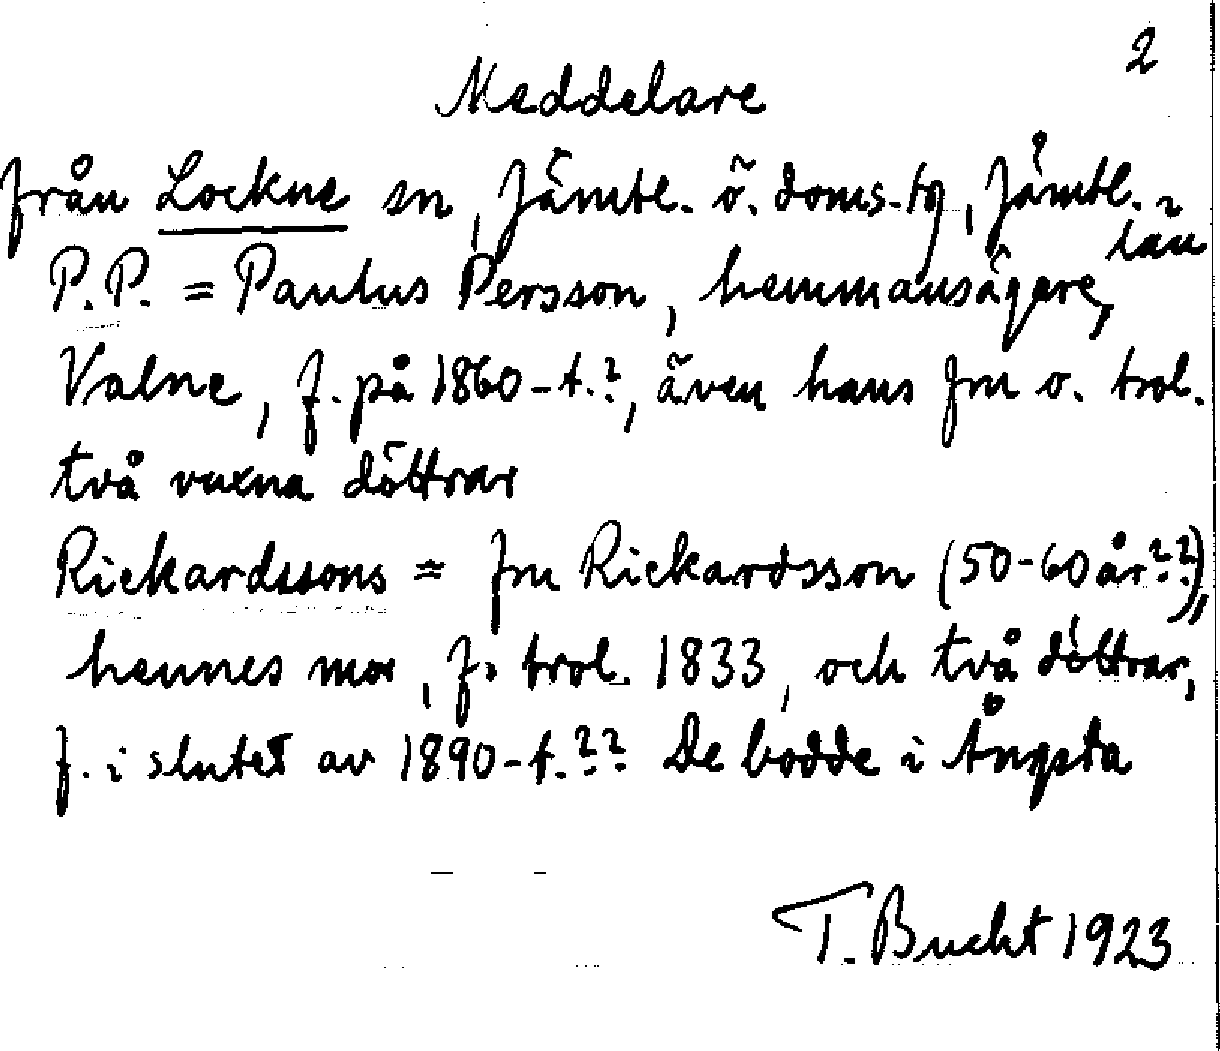 2
Meddelare
från Lockne sn, Jämtl. ö. doms.-tg, Jämtl.s
län
P.P. = Paulus Persson, hemmansägare,
Valne, f. på 1860-t.?, även hans fru o. trol.
två vuxna döttrar
Rickardssons = fru Rickardsson (50-60 år??),
hennes mor, f. trol. 1833, och två döttrar,
f. i slutet av 1890-t.?? De bodde i Ångsta
T. Bucht 1923